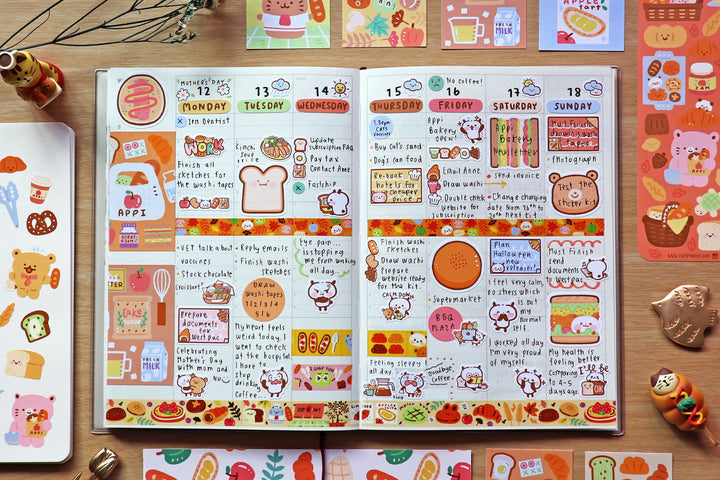 APPLE
tart
MILK
FRESH
JAM
MOTHER'S DAY
12
MONDAY
13
TUESDAY
14
WEDNESDAY
15
THURSDAY
16
FRIDAY
No coffee!
17
SATURDAY
18
SUNDAY
11AM Dentist
WORK
Finish all
sketches for
the washi tapes
APPI
Update
subscription
Pay tax
Contact
1.30pm
Cats
vaccines
Buy Cat's sand
Dog's can food
Re-book
hotels for
cheaper
price
APPI
Bakery
OPEN!
Email Anne
Draw washi
Double check
website for
subscription
Appi
Bakery
Newsletter
send invoice
Change ending
date from 16th to
20th next kit
Must finish
drawing
Photograph
Test the
sticker kit
VET talk about
vaccines
Stock chocolate
croissant!
Prepare
documents for
West pac
Celebrating
Mother's Day
with mom and
Reply emails
Finish washi
sketches
DRAW
washi tapes
1/2/3/4
5/6
My heart feels
weird today. I
went to check
at the hospital.
I have to
stop
drinking
coffee...
Eye pain...
is stopping
me from working
all day...
I LOVE YOU
OPEN!
Finish washi
sketches
Prepare
website ready
for May kit.
CALM DOWN
Feeling sleepy
all day.
Supermarket
BBQ
PLAZA
Goodbye,
coffee
Plan
Halloween
new
releases!
I feel very calm,
no stress which
is not
my
normal
self.
I worked all
day I'm very
proud of
myself.
Must finish
send
documents to
West pac
My health is
feeling better
Comparing
to 4-5
days ago.
OK
CAKE
FLOUR
FRESH
MILK
APPI